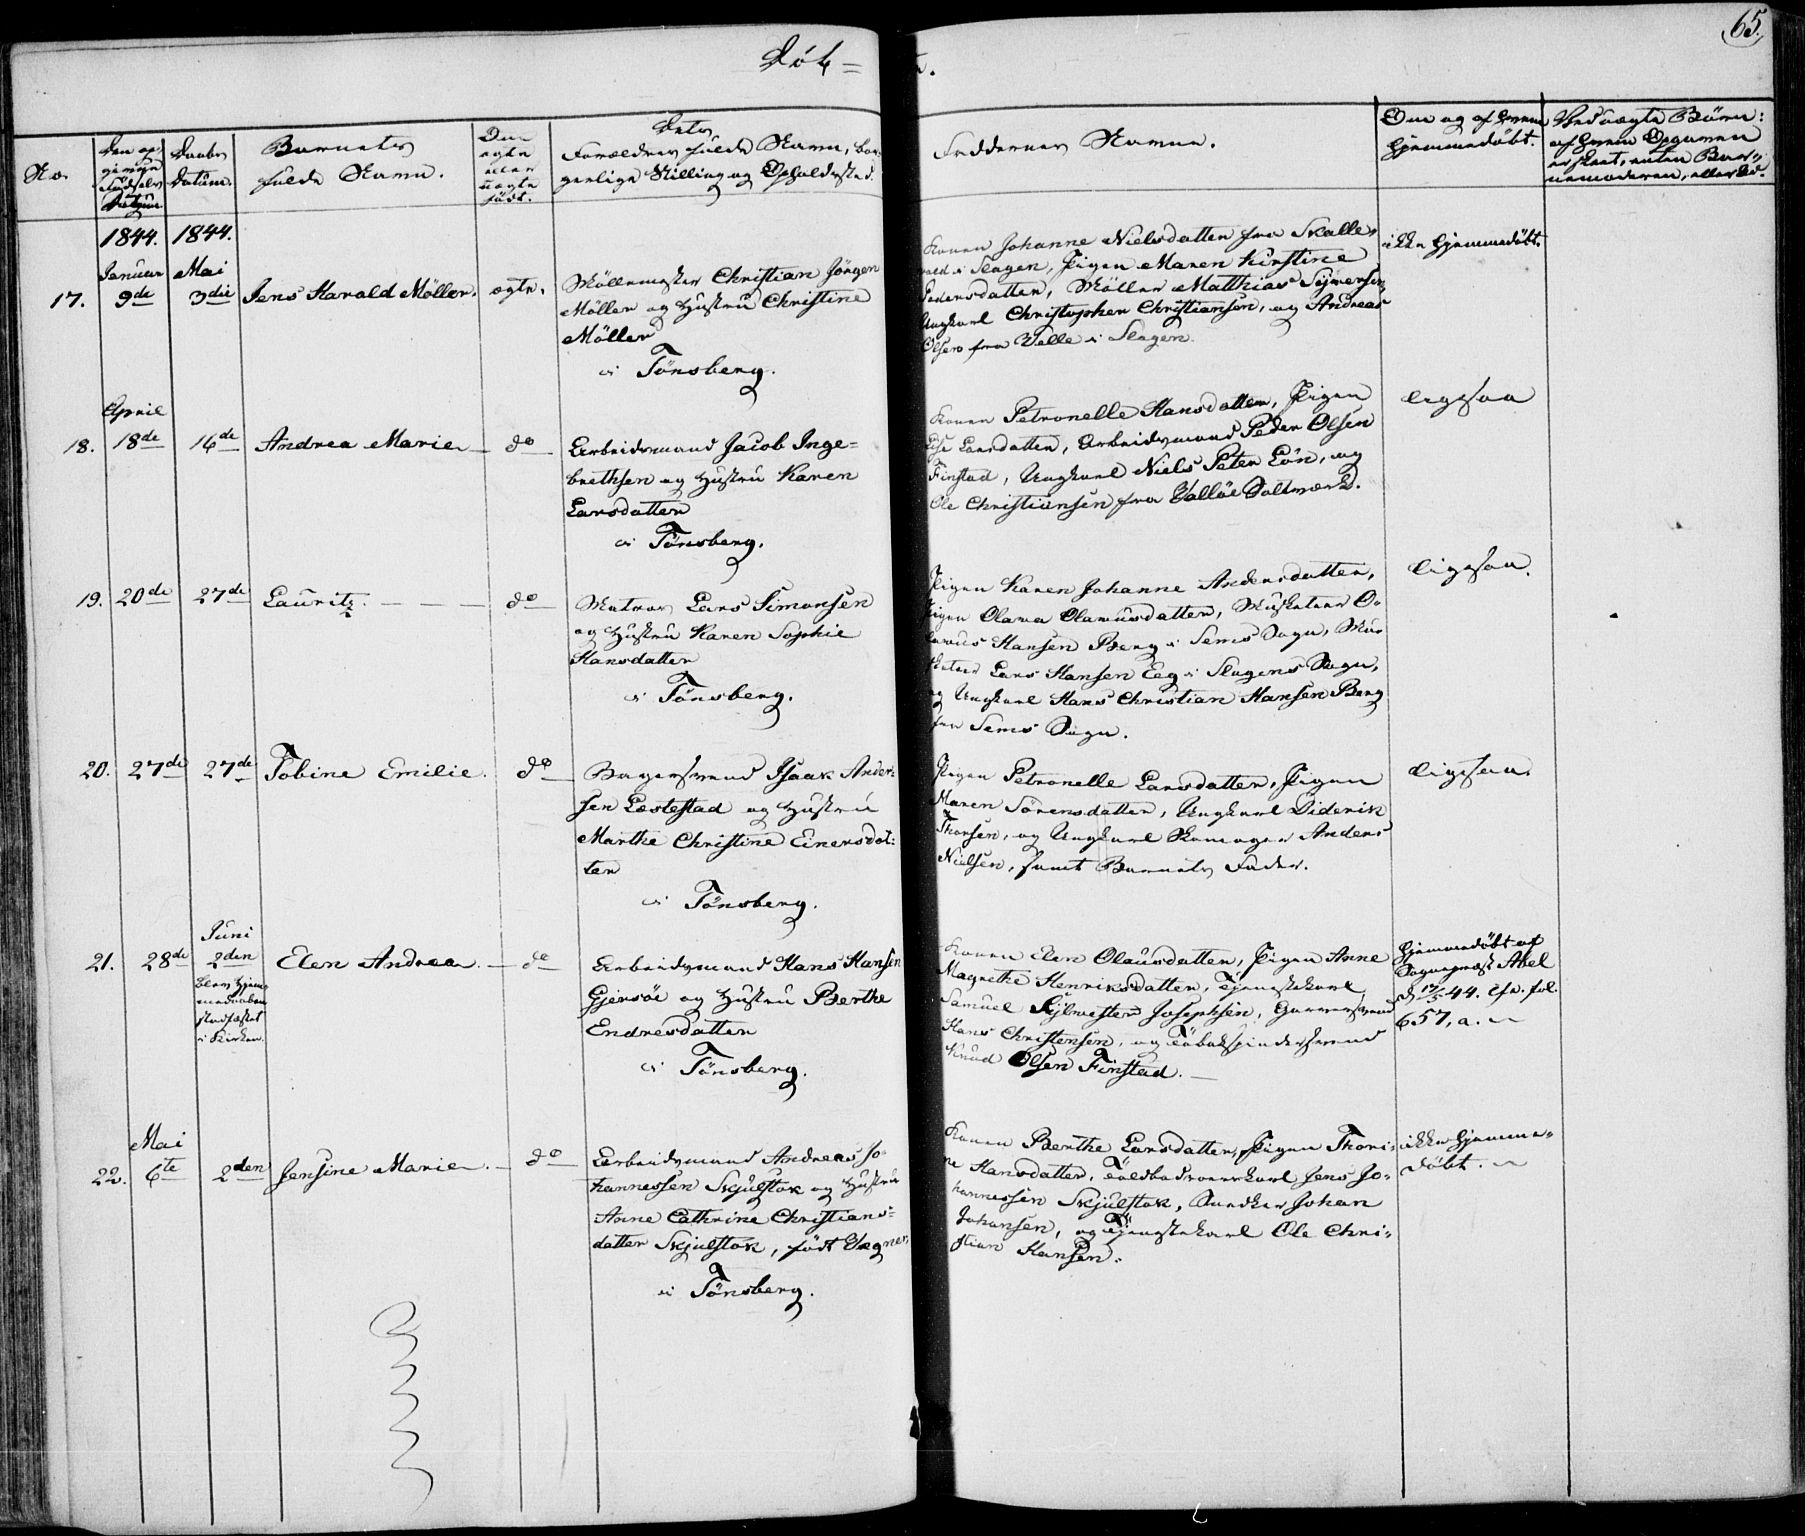 65.
Døb=
te.
No.
Den op-
givne
Fødsels
Datum.
Daabs
Datum.
Barnets
fulde Navn.
Om
ægte
eller
uægte
født.
Dets
Forældres fulde Navn, bor-
gerlige Stilling og Opholdssted.
Faddernes Navne.
Om og af hvem
hjemmedøbt.
Ved uægte Børn:
af hvem Opgaven
er skeet, enten Bar-
nemoderen, eller Ad.
1844.
1844.
17.
Januar
9de
Mai
3die
Jens Harald Møller.
ægte.
Møllemester Christian Jörgen
Møller og Hustru Christine
Møller
i Tönsberg.
Konen Johanne Nielsdatter fra Skalle-
vold i Slagen, Pigen Maren Kirstine
Pedersdatter, Møller Matthias Syversen,
Ungkarl Christopher Christiansen, og Andreas
Olsen fra Velle i Slagen.
ikke hjemmedøbt.
18.
April
18de
16de
Andrea Marie
do
Arbeidsmand Jacob Inge-
brethsen og Hustru Karen
Larsdatter
i Tönsberg.
Konen Petronelle Hansdatter, Pigen
Else Larsdatter, Arbeidsmand Peder Olsen
Finstad, Ungkarl Niels Peter Lön, og
Ole Christiansen fra Valløe Saltværk.
ligesaa
19.
20de
27de
Lauritz.
do
Matros Lars Simonsen
og Hustru Karen Sophie
Hansdatter
i Tönsberg.
Pigen Karen Johanne Andersdatter,
Pigen Olava Olaves datter, Musketeer O-
laves Hansen Berg i Sems Sogn, Mus-
keteer Lars Hansen Eeg i Slagens Sogn,
og Ungkarl Hans Christian Hansen Berg
fra Sems Sogn.
ligesaa.
20.
27de
27de
Tobine Emilie.
do
Bagersvend Isaak Ander-
sen Lestestad og Hustru
Marthe Christine Einersdat-
ter
i Tönsberg.
Pigen Petronelle Larsdatter, Pigen
Maren Sörensdatter, Ungkarl Diderik
Thorsen, og Ungkarl Skomager Anders
Nielsen, samt Barnets Fader.
ligesaa.
21.
28de
Juni
2den
blev Hjem-
medaaben
stadfæstet
i Kirken.
Elen Andrea.
do
Arbeidsmand Hans Hansen
Gjersöe og Hustru Berthe
Endresdatter
i Tönsberg.
Konen Elen Olausdatter, Pigen Anne
Magrethe Henriksdatter, Tjenestekarl
Samuel Sylvester Josephsen, Garversvend
Hans Christensen, og Tobakspindersvend
Knud Olsen Finstad.
Hjemmedøbt af
Sognepræst Abel
d. 17/5 44. Cfr. fol.
657, a.
22.
Mai
6te
2den
Jensine Marie.
do
Arbeidsmand Andreas Jo-
hannessen Skjulstok og Hustru
Anne Cathrine Christians-
datter Skjulstok, født Wegner,
i Tönsberg.
Konen Berthe Larsdatter, Pigen Thori-
ne Hansdatter, Toldbadroerskarl Jens Jo-
hannessen Skjulstok, Snedker Johan
Johansen, og Tjenestekarl Ole Chri-
stian Hansen.
ikke hjemme-
døbt.